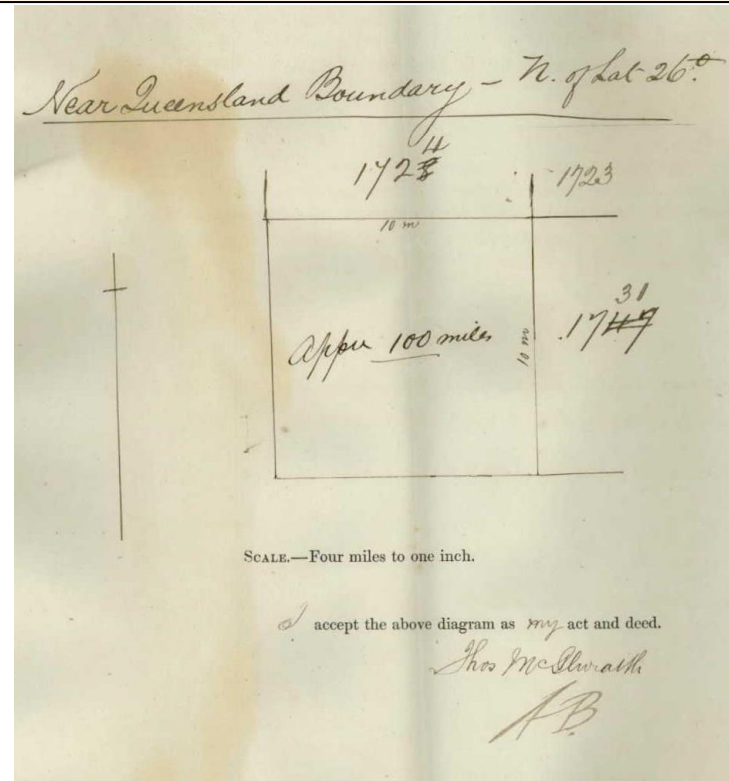 Near Queensland Boundary – N. of Lat 26°.
4
1728 1723
10 m
31
1747
Appx 100 miles
10 m
SCALE.—Four miles to one inch.
I accept the above diagram as my act and deed.
Thos McIlwraith
AB